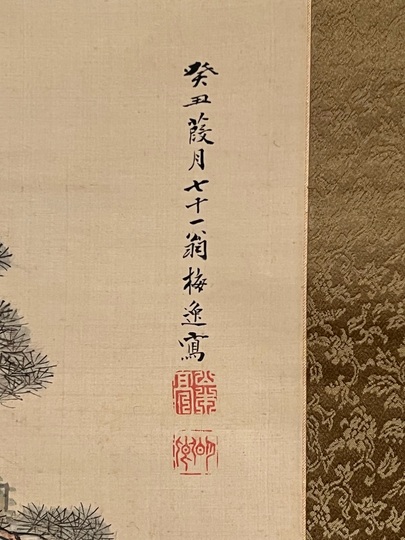 癸丑葭月七十一翁梅逸寫